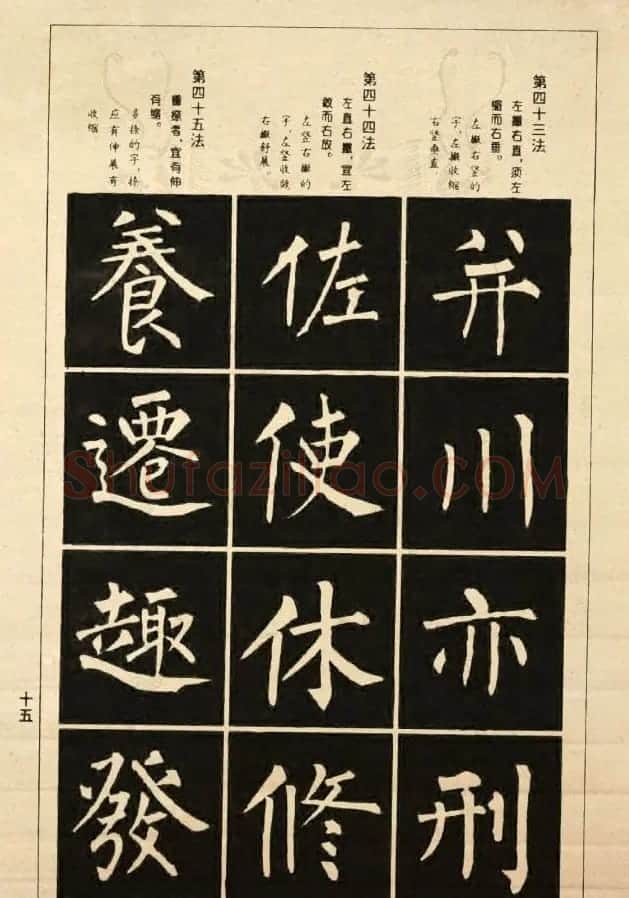 第四十三法
左撇右直,须左
缩而右垂。
左撇右竖的
字,左撇收缩
右竖垂直。
并
川
亦
刑
第四十四法
左直右撇,宜左
敛而右放。
左竖右撇的
字,左竖收敛
右撇舒展。
佐
使
休
修
第四十五法
重捺者,宜有伸
有缩。
多捺的字,捺
应有伸展有
收缩
養
遷
趣
發
十五
Shufaziliao.COM